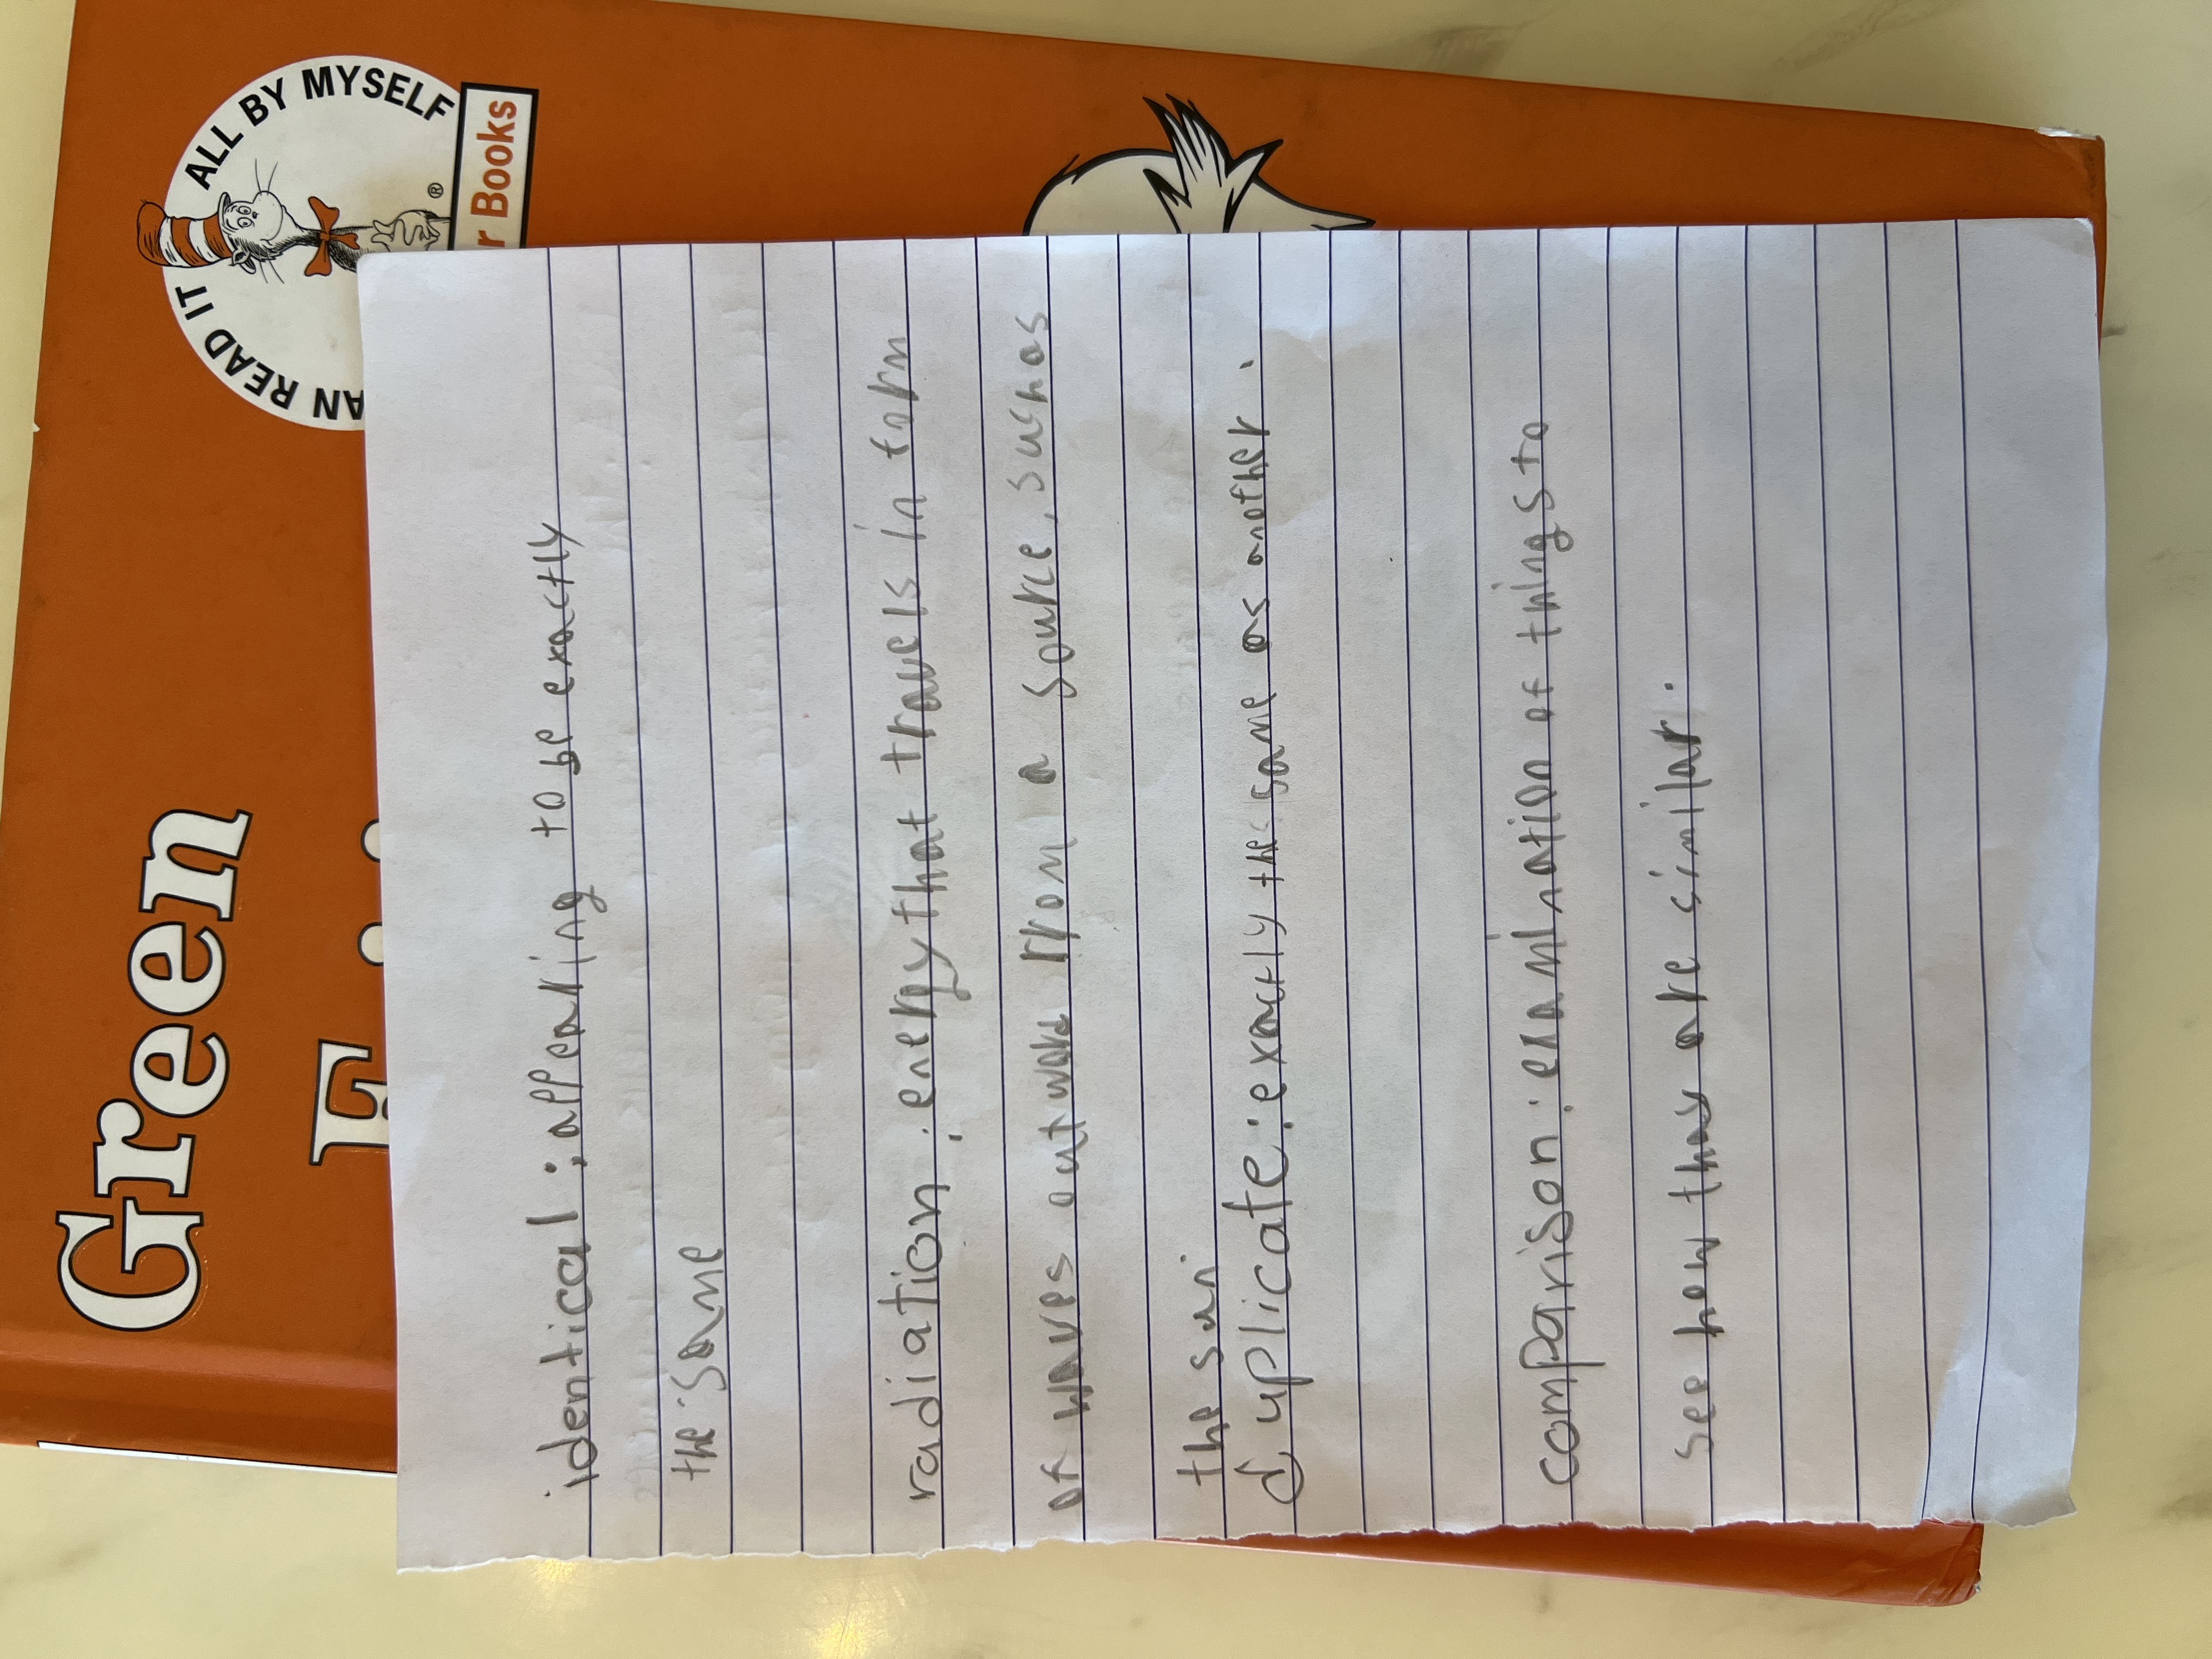 ALL BY MYSELF
AN READ IT
r Books
®
Green
identical: appearing to be exactly
the same
radiation: energy that travels in form
of waves outward from a source, such as
the sun
duplicate: exactly the same as another.
comparison: examination of things to
see how thay are similar.